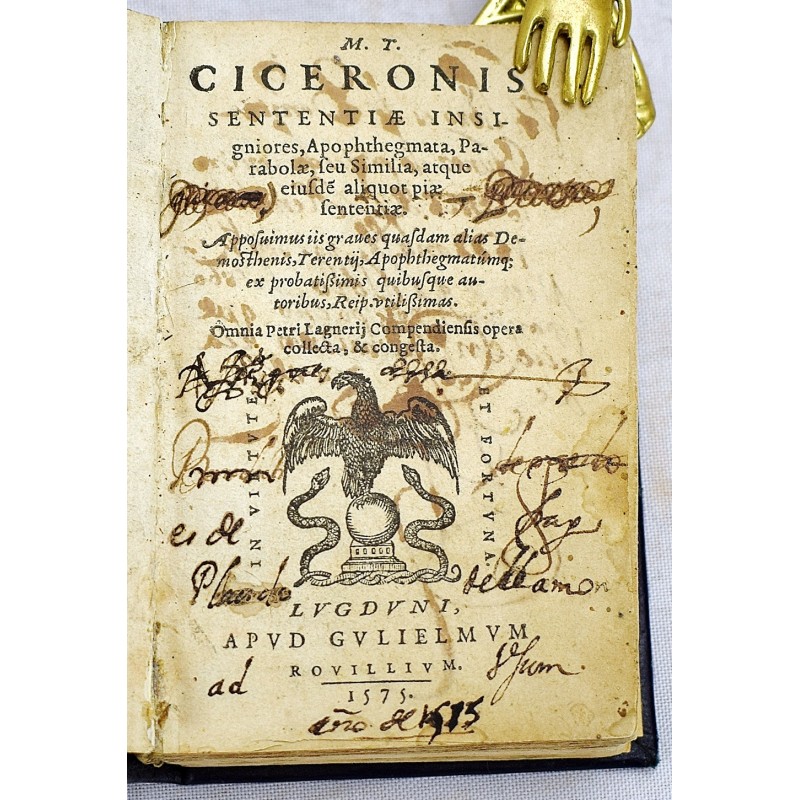 M. T.
CICERONIS
SENTENTIÆ INSI-
gniores, Apophthegmata, Pa-
rabolæ, ſeu Similia, atque
eiuſdē aliquot piæ
ſententiæ.
Appoſuimus iis graues quaſdam alias De-
moſthenis, Terentij, Apophthegmatúmq;
ex probatißimis quibuſque au-
toribus, Reip. vtilißimas.
Omnia Petri Lagnerij Compendienſis opera
collecta, & congeſta.
IN VIRTVTE
ET FORTVNA.
es de
fray
LVGDVNI,
APVD GVLIELMVM
ROVILLIVM.
ad
1575.
año de 1575